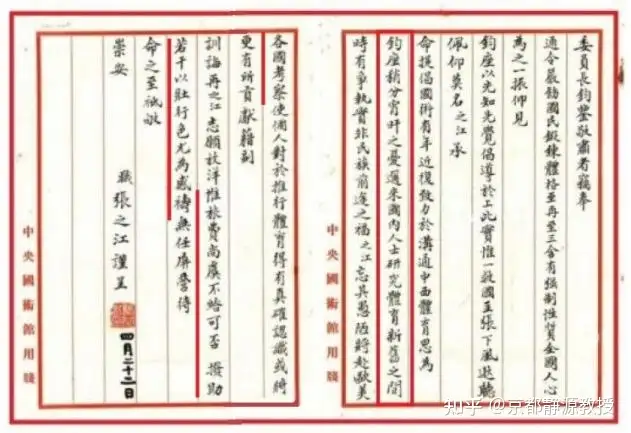 委員長鈞鑒敬肅者竊奉
通令嚴飭國民鍛鍊體格至再至三含有強制性質全國人心
為之一振仰見
鈞座以先知先覺倡導於上比實惟一救國主張下風逖聽
佩仰莫名之江承
命提倡國術有年近復致力於溝通中西體育思為
鈞座稍分宵旰之憂邇來國內人士研究體育新舊之間
時有爭執實非民族前途之福之江忘其愚陋將赴歐美
中央國術館用牋
各國考察使個人對於推行體育得有真確認識或將
更有所貢獻藉副
訓誨再之江志願放洋惟旅費尚虞不給可否 撥助
若干以壯行色尤為感禱無任屏營待
命之至祗敬
崇安
職張之江謹呈
四月二十二日
中央國術館用牋
知乎 @京都静源教授